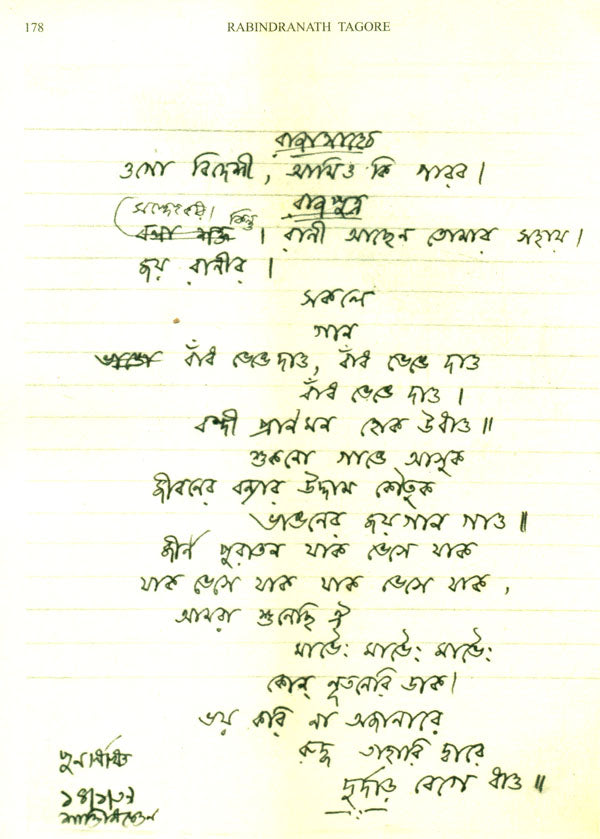 178 RABINDRANATH TAGORE
রাজাসাহেব
ওগো বিদেশী, আমিও কি পারব।
রাজপুত্র
কিন্তু
। রানী আছেন তোমার সহায়।
জয় রানীর।
সকলে
গান
বাঁধ ভেঙে দাও, বাঁধ ভেঙে দাও
বাঁধ ভেঙে দাও।
বন্দী প্রাণমন হোক উধাও॥
শুকনো গাঙে আসুক
জীবনের বন্যার উদ্দাম কৌতুক
ভাঙনের জয়গান গাও॥
জীর্ণ পুরাতন যাক ভেসে যাক
যাক ভেসে যাক যাক ভেসে যাক,
আমরা শুনেছি ঐ
মাভৈঃ মাভৈঃ মাভৈঃ
কোন্ নূতনেরি ডাক।
ভয় করি না অজানারে
রুদ্ধ তাহারি দ্বারে
দুর্দাড় বেগে ধাও॥
শান্তিনিকেতন